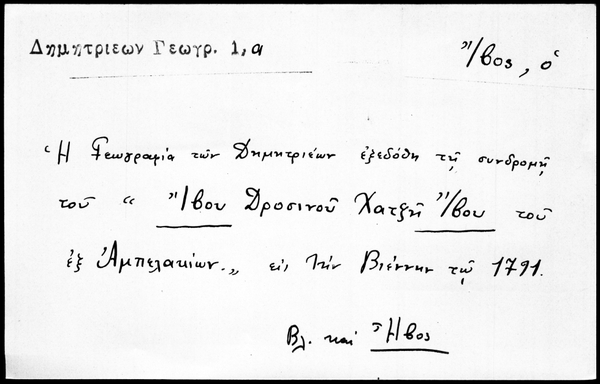 Δημητριεων Γεωγρ. 1,α
Ἴβος, ὁ
Ἡ Γεωγραφία τῶν Δημητριέων ἐξεδόθη τῇ συνδρομῇ
τοῦ “ Ἴβου Δροσινοῦ Χατζῆ Ἴβου τοῦ
ἐξ Ἀμπελακίων.„ εἰς τὴν Βιέννην τῷ 1791.
Βλ. καὶ Ἦβος